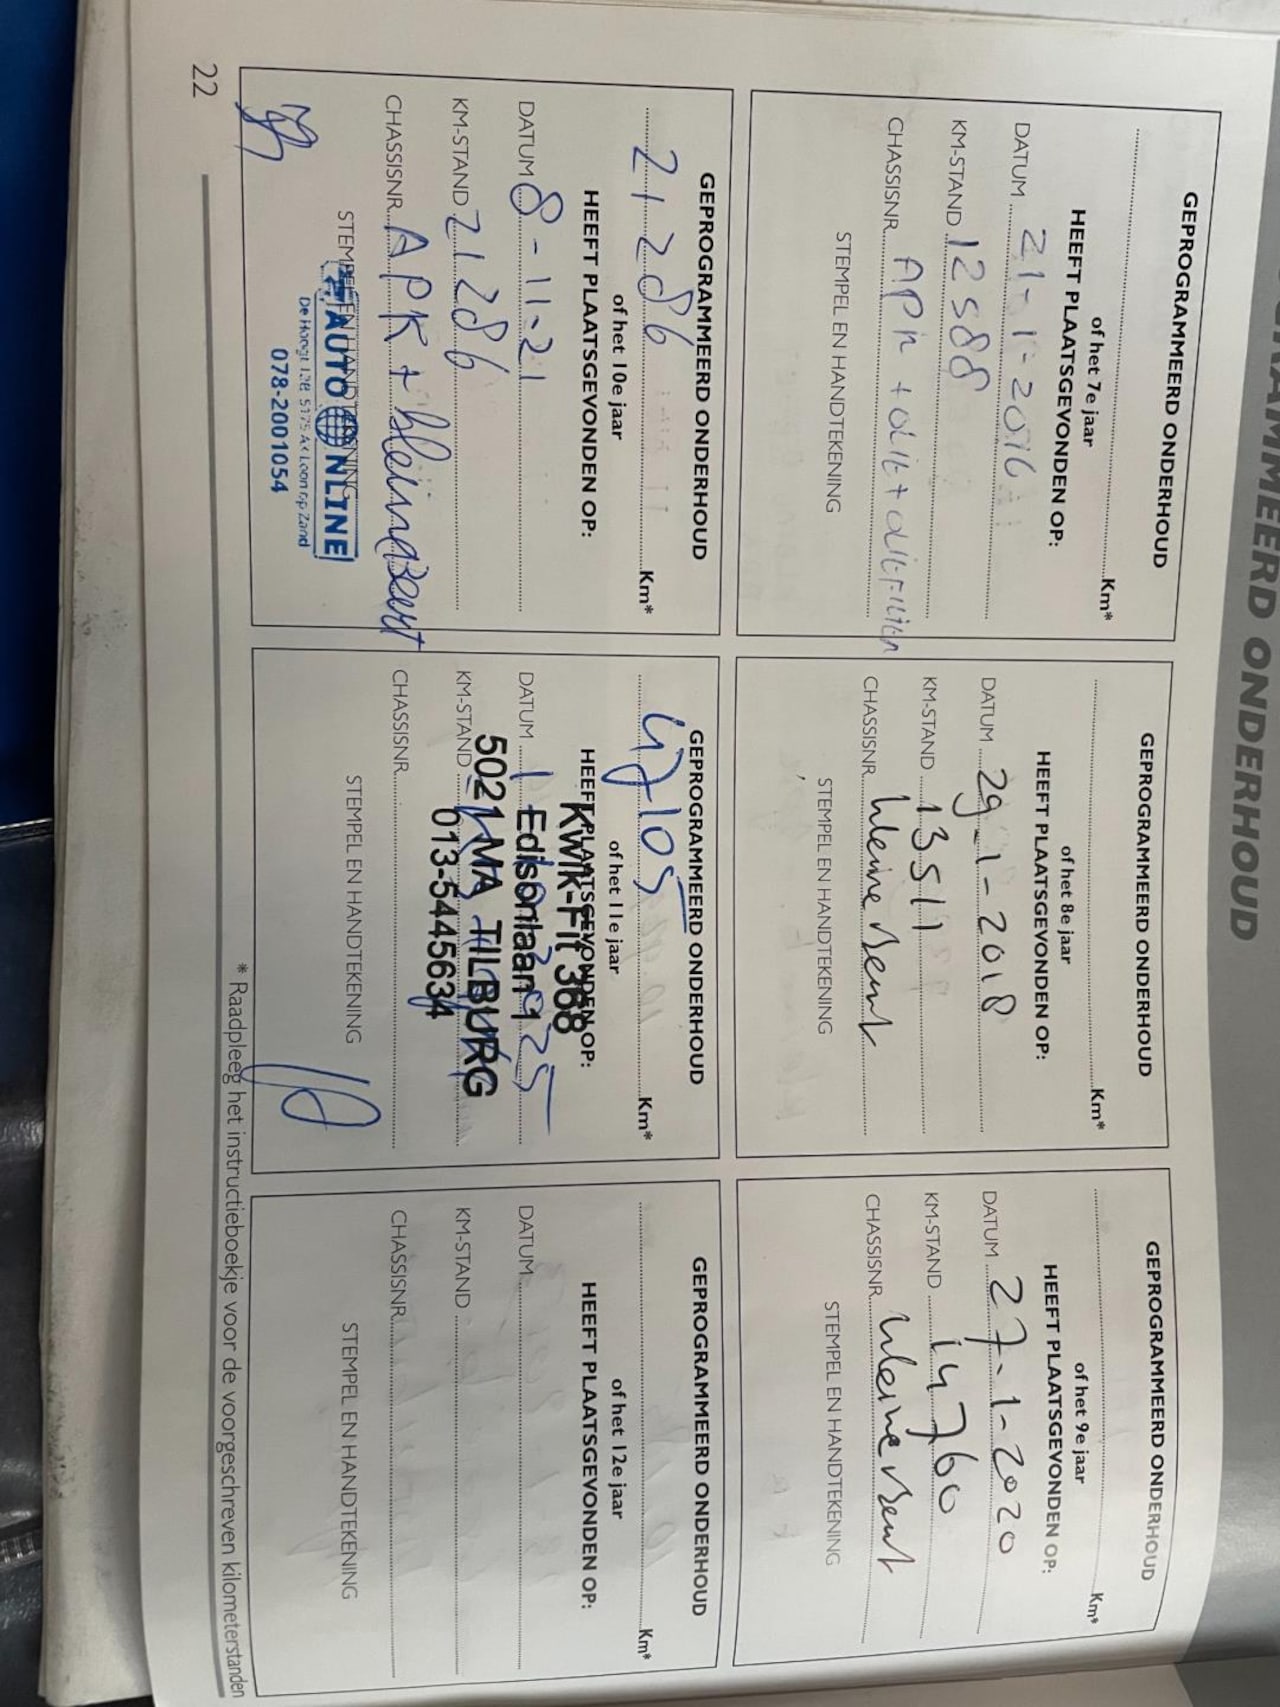 GEPROGRAMMEERD ONDERHOUD
GEPROGRAMMEERD ONDERHOUD
Km*
of het 7e jaar
HEEFT PLAATSGEVONDEN OP:
DATUM 21-1-2016
KM-STAND 12588
CHASSISNR. APK + olie + oliefilter
STEMPEL EN HANDTEKENING
GEPROGRAMMEERD ONDERHOUD
Km*
of het 8e jaar
HEEFT PLAATSGEVONDEN OP:
DATUM 29-1-2018
KM-STAND 13511
CHASSISNR. kleine beurt
STEMPEL EN HANDTEKENING
GEPROGRAMMEERD ONDERHOUD
Km*
of het 9e jaar
HEEFT PLAATSGEVONDEN OP:
DATUM 27-1-2020
KM-STAND 14760
CHASSISNR. kleine beurt
STEMPEL EN HANDTEKENING
GEPROGRAMMEERD ONDERHOUD
21286 Km*
of het 10e jaar
HEEFT PLAATSGEVONDEN OP:
DATUM 8-11-21
KM-STAND 21286
CHASSISNR. APK + kleine Beurt
STEMPEL EN HANDTEKENING
AUTO ONLINE
De Hoogt 5175 AX Loon op Zand
078-2001054
GEPROGRAMMEERD ONDERHOUD
47105 Km*
of het 11e jaar
HEEFT PLAATSGEVONDEN OP:
KWIK-Fit 368
DATUM
Edisonlaan 1
KM-STAND
5021 MA TILBURG
013-5445634
CHASSISNR.
STEMPEL EN HANDTEKENING
GEPROGRAMMEERD ONDERHOUD
Km*
of het 12e jaar
HEEFT PLAATSGEVONDEN OP:
DATUM
KM-STAND
CHASSISNR.
STEMPEL EN HANDTEKENING
* Raadpleeg het instructieboekje voor de voorgeschreven kilometerstanden
22